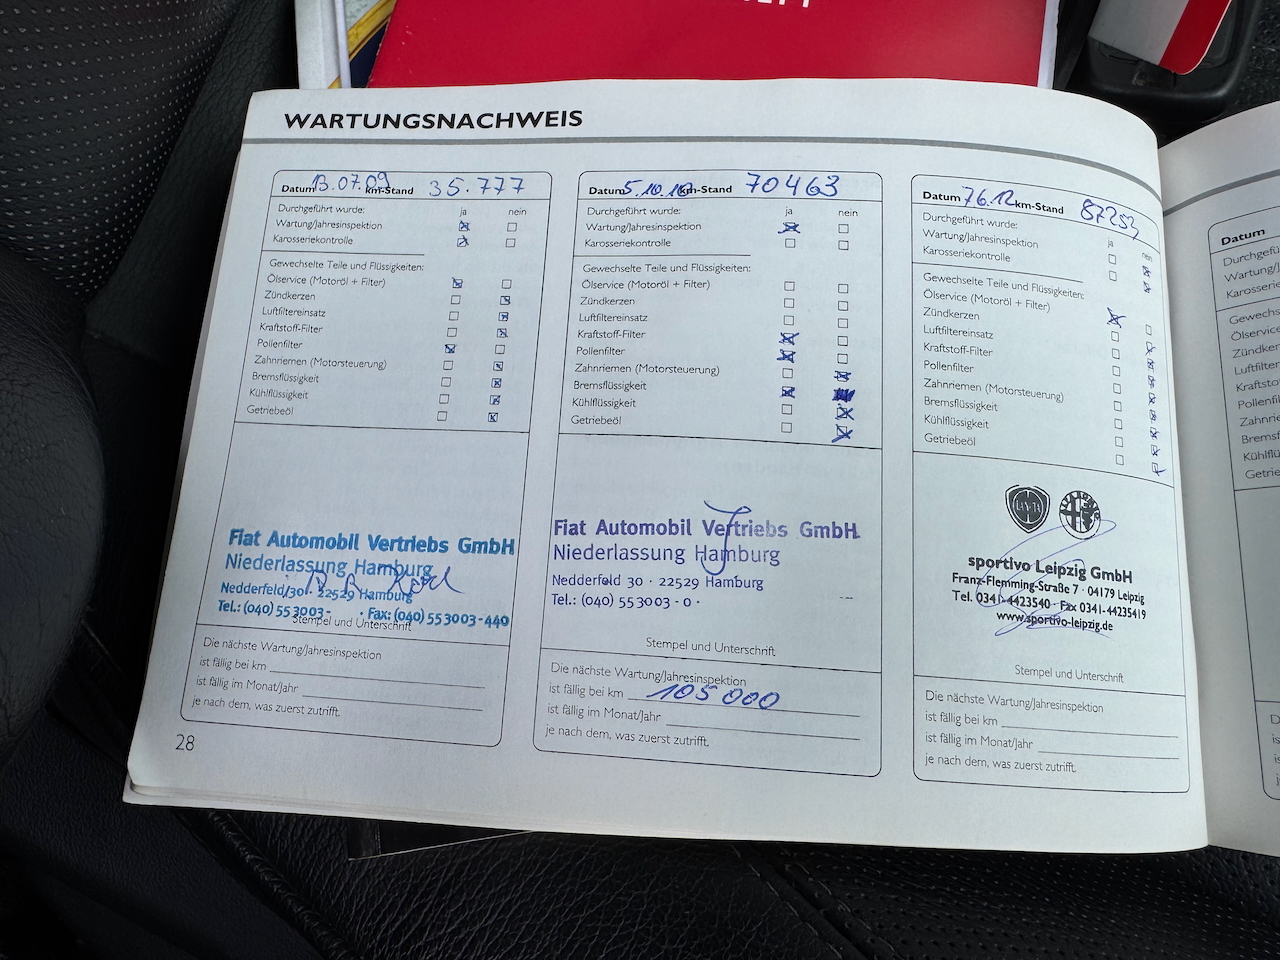 WARTUNGSNACHWEIS
Datum 13.07.09 km-Stand 35.777
Durchgeführt wurde: ja nein
Wartung/Jahresinspektion
Karosseriekontrolle
Gewechselte Teile und Flüssigkeiten:
Ölservice (Motoröl + Filter)
Zündkerzen
Luftfiltereinsatz
Kraftstoff-Filter
Pollenfilter
Zahnriemen (Motorsteuerung)
Bremsflüssigkeit
Kühlflüssigkeit
Getriebeöl
Fiat Automobil Vertriebs GmbH
Niederlassung Hamburg
Nedderfeld 30 · 22529 Hamburg
Tel.: (040) 553003- · Fax: (040) 553003-440
Stempel und Unterschrift
Die nächste Wartung/Jahresinspektion
ist fällig bei km
ist fällig im Monat/Jahr
je nach dem, was zuerst zutrifft.
28
Datum 5.10.10 km-Stand 70463
Durchgeführt wurde: ja nein
Wartung/Jahresinspektion
Karosseriekontrolle
Gewechselte Teile und Flüssigkeiten:
Ölservice (Motoröl + Filter)
Zündkerzen
Luftfiltereinsatz
Kraftstoff-Filter
Pollenfilter
Zahnriemen (Motorsteuerung)
Bremsflüssigkeit
Kühlflüssigkeit
Getriebeöl
Fiat Automobil Vertriebs GmbH
Niederlassung Hamburg
Nedderfeld 30 · 22529 Hamburg
Tel.: (040) 553003 - 0 ·
Stempel und Unterschrift
Die nächste Wartung/Jahresinspektion
ist fällig bei km 105 000
ist fällig im Monat/Jahr
je nach dem, was zuerst zutrifft.
Datum 7.6.12 km-Stand 87253
Durchgeführt wurde: ja nein
Wartung/Jahresinspektion
Karosseriekontrolle
Gewechselte Teile und Flüssigkeiten:
Ölservice (Motoröl + Filter)
Zündkerzen
Luftfiltereinsatz
Kraftstoff-Filter
Pollenfilter
Zahnriemen (Motorsteuerung)
Bremsflüssigkeit
Kühlflüssigkeit
Getriebeöl
sportivo Leipzig GmbH
Franz-Flemming-Straße 7 · 04179 Leipzig
Tel. 0341-4423540 · Fax 0341-44235419
www.sportivo-leipzig.de
Stempel und Unterschrift
Die nächste Wartung/Jahresinspektion
ist fällig bei km
ist fällig im Monat/Jahr
je nach dem, was zuerst zutrifft.
Datum